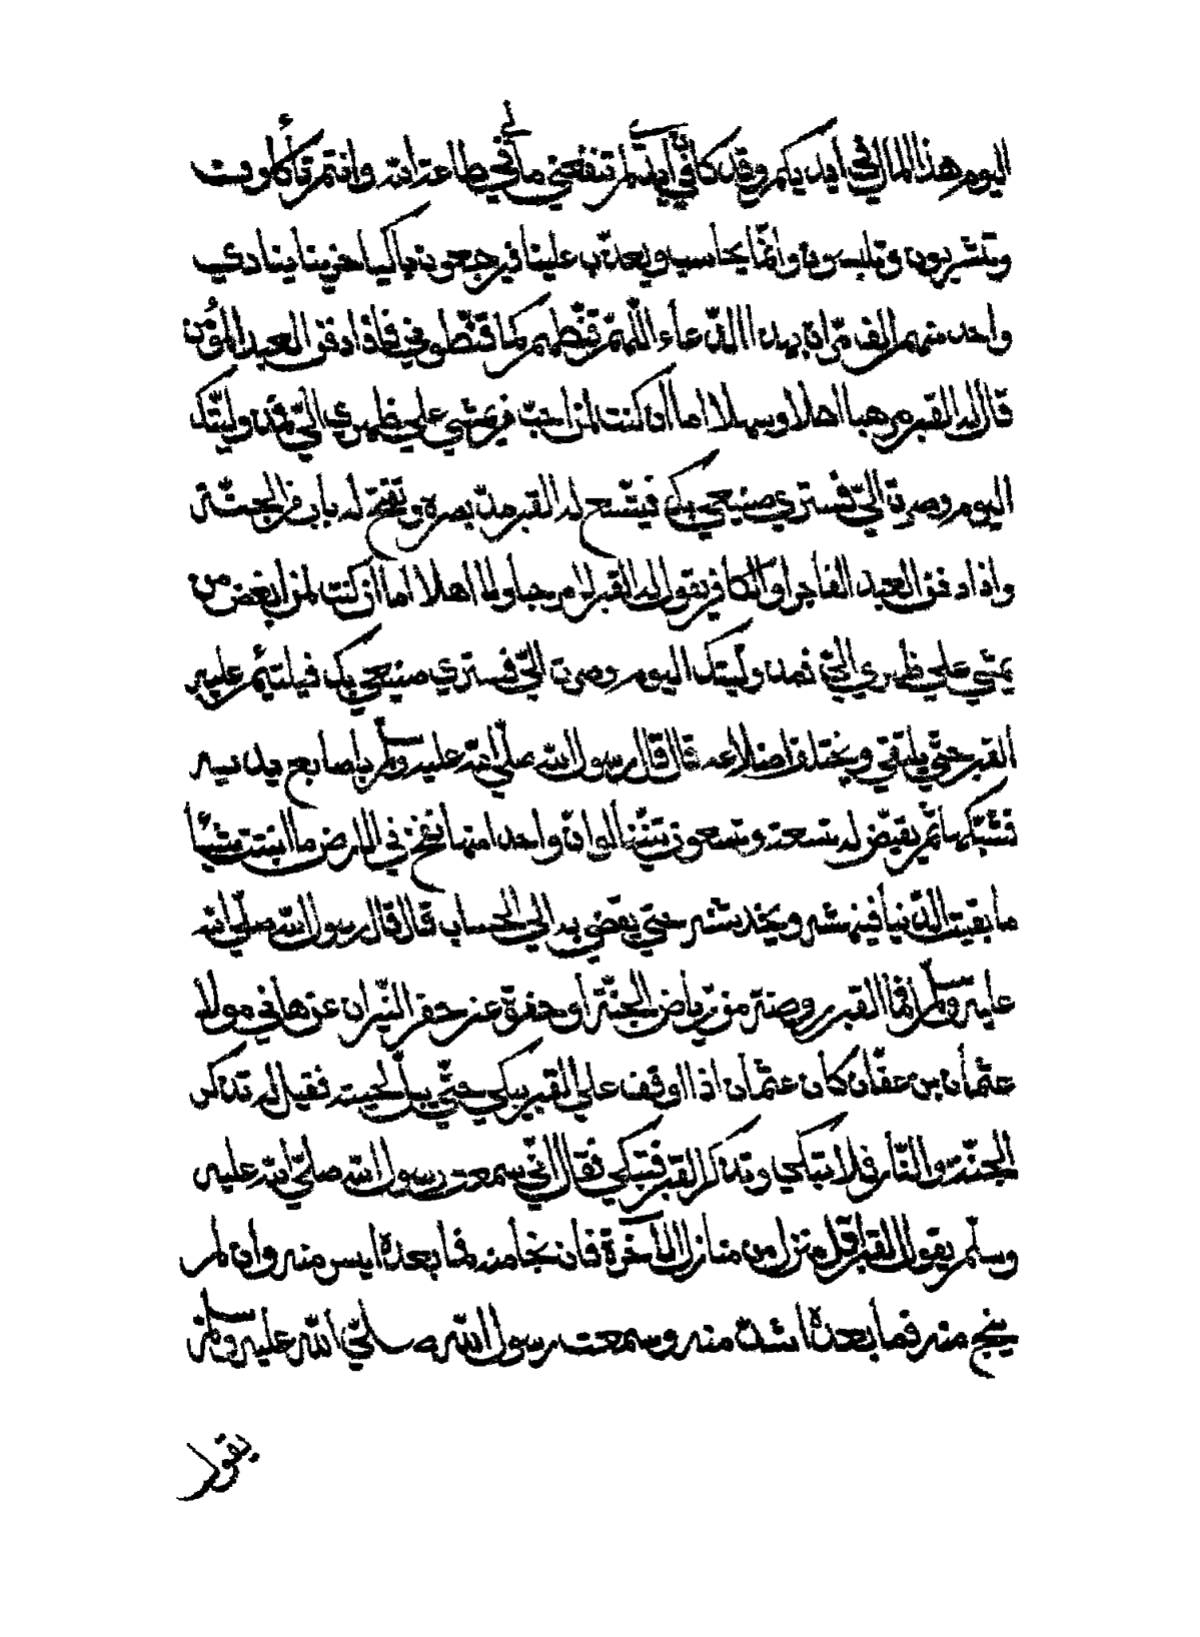 اليوم هذا المال في ايديكم وقد كان في ايدينا لم تنفعني مالي في طاعة الله وانتم تأكلون
وتشربون وتلبسون وانما يحاسب ويعذب علينا فيرجعون باكيا حزينا ينادي
واحد منهم الف مرات بهذا الدعاء اللهم قنطهم كما قنطوني فاذا دفن العبد المؤمن
قال له القبر مرحبا اهلا وسهلا اما ان كنت لمن احب من يمشي علي ظهري الي فمذ وليتك
اليوم وصرت الي فستري صنيعي بك فيتسع له القبر مد بصره وتفتح له باب من الجنة
واذا دفن العبد الفاجر او الكافر يقول له القبر لا مرحبا ولا اهلا اما ان كنت لمن ابغض من
يمشي علي ظهري الي فمذ وليتك اليوم وصرت الي فستري صنيعي بك فيلتئم عليه
القبر حتي يلتقي ويختلف اضلاعه قال قال رسول الله صلي الله عليه وسلم باصابع يديه
فشبكها ثم يقيض له تسعة وتسعون تنينا لو ان واحدا منها نفخ في الارض ما انبتت شيئا
ما بقيت الدنيا فينهشه ويخدشه حتي يقضي به الي الحساب قال قال رسول الله صلي الله
عليه وسلم انما القبر روضة من رياض الجنة او حفرة من حفر النيران عن هاني مولا
عثمان بن عفان كان عثمان اذا وقف علي القبر يبكي حتي يبل لحيته فقيل له تذكر
الجنة والنار فلا تبكي وتذكر القبر فتبكي فقال اني سمعت رسول الله صلي الله عليه
وسلم يقول القبر اول منزل من منازل الآخرة فان نجا منه فما بعده ايسر منه وان لم
ينج منه فما بعده اشد منه وسمعت رسول الله صلي الله عليه وسلم
يقول